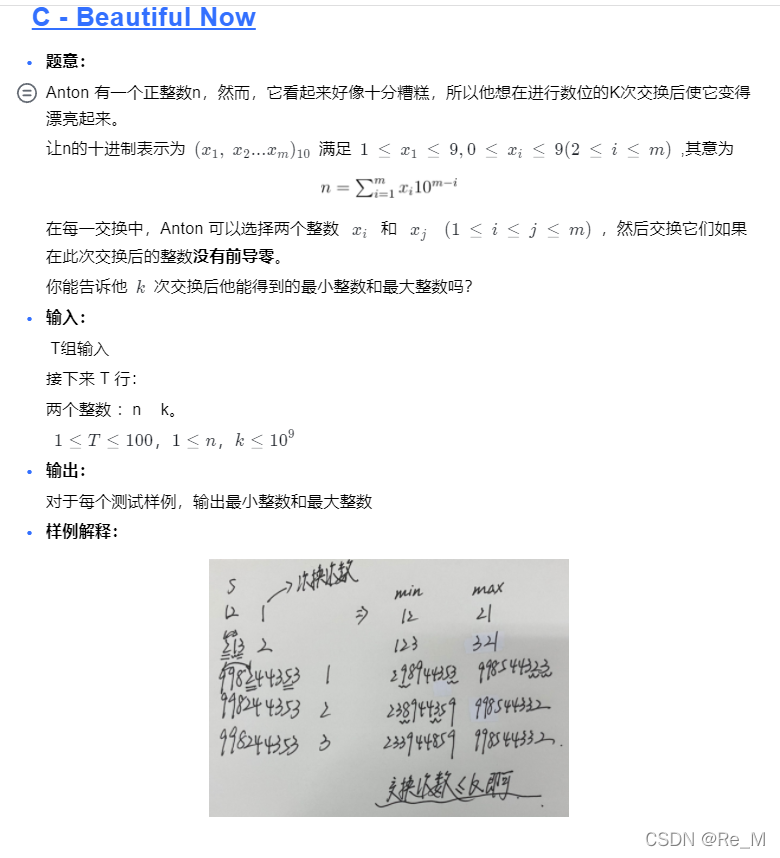 C - Beautiful Now
题意：
Anton 有一个正整数n，然而，它看起来好像十分糟糕，所以他想在进行数位的K次交换后使它变得
漂亮起来。
让n的十进制表示为 (x₁, x₂...xₘ)₁₀ 满足 1 ≤ x₁ ≤ 9, 0 ≤ xᵢ ≤ 9(2 ≤ i ≤ m) ,其意为
n = ∑ᵢ₌₁ᵐ xᵢ10ᵐ⁻ⁱ
在每一交换中，Anton 可以选择两个整数 xᵢ 和 xⱼ (1 ≤ i ≤ j ≤ m) ，然后交换它们如果
在此次交换后的整数没有前导零。
你能告诉他 k 次交换后他能得到的最小整数和最大整数吗？
输入：
T组输入
接下来 T 行：
两个整数 ：n k。
1 ≤ T ≤ 100，1 ≤ n，k ≤ 10⁹
输出：
对于每个测试样例，输出最小整数和最大整数
样例解释：
交换次数
S min max
12 1 ⇒ 12 21
213 2 123 321
998244353 1 298944353 998544323
998244353 2 238944359 998544332
998244353 3 233944859 998544332.
交换次数≤k即可
CSDN @Re_M